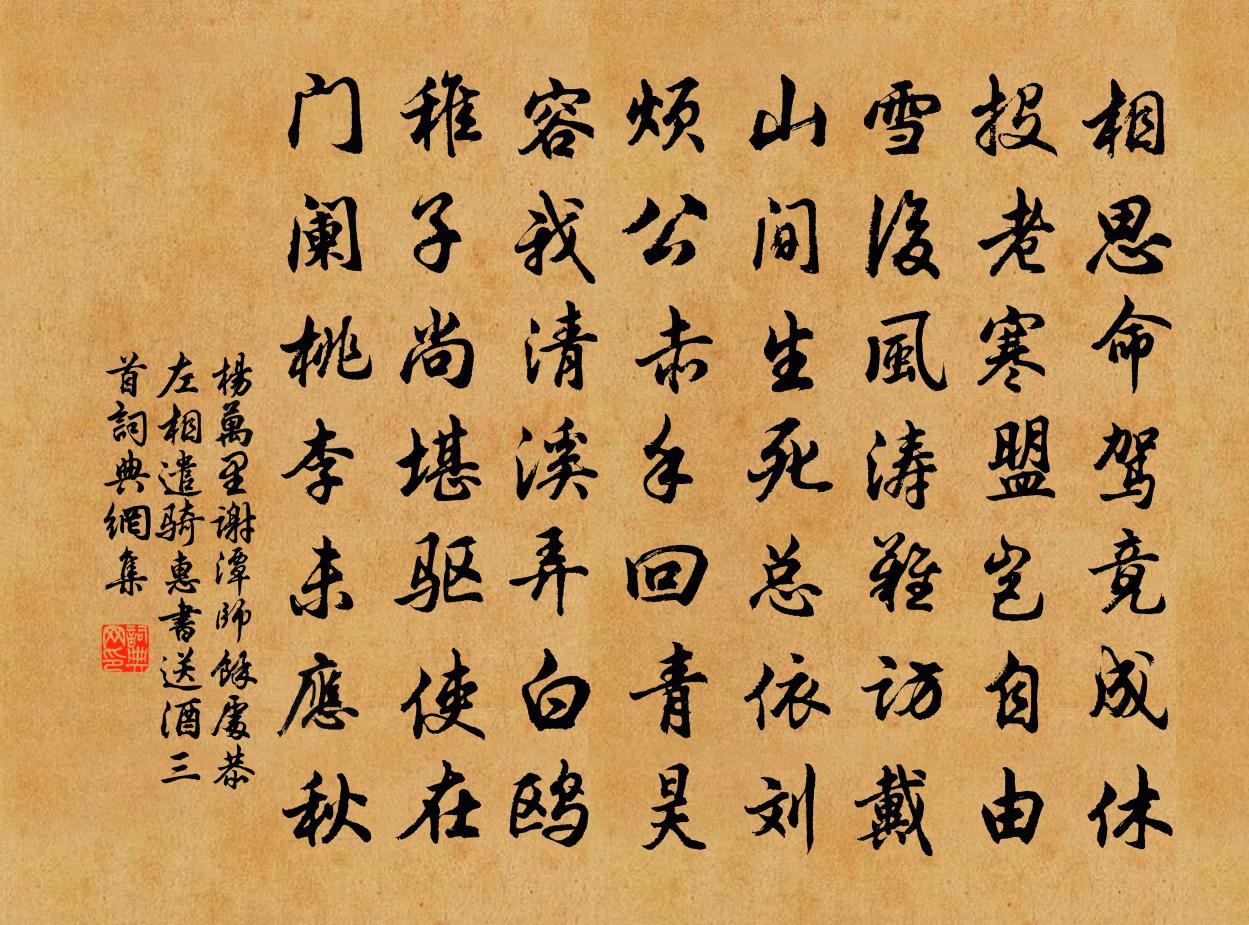 相思命驾竟成休
投老寒盟岂自由
雪後風涛難访戴
山间生死总依刘
烦公赤手回青昊
容我清溪弄白鸥
稚子尚堪驱使在
门阑桃李未應秋
楊萬里谢潭师餘處恭
左相遣骑惠書送酒三
首詞典網集
詞典网印